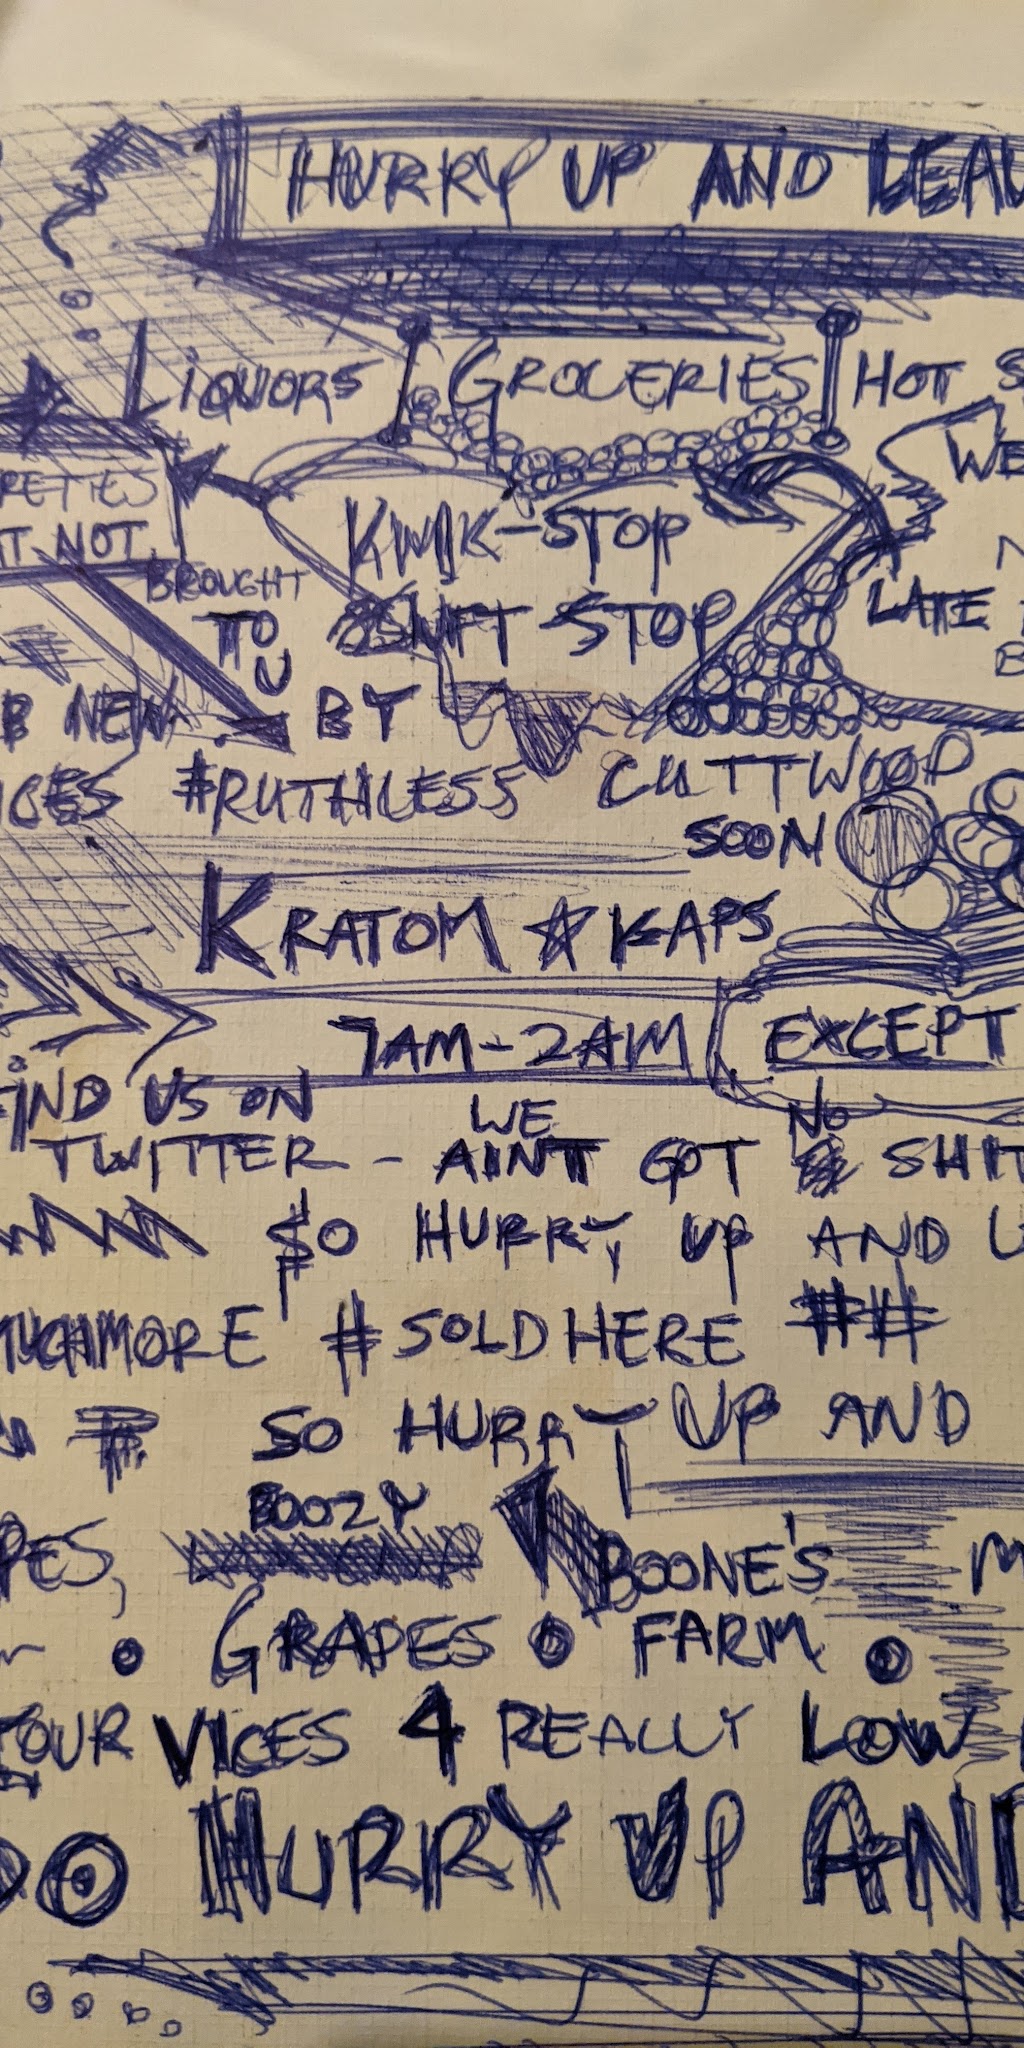 HURRY UP AND LEAV
LIQUORS GROCERIES HOT S
WE
RETTES
AT NOT
KWIK-STOP
BROUGHT
TO
U
STOP
LATE
B NEW BY
ICES #RUTHLESS CUTTWOOD
SOON
KRATOM ☆ KAPS
7AM-2AM EXCEPT
FIND US ON
TWITTER - WE AINT GOT NO SHIT
$O HURRY UP AND L
MUCHMORE #SOLDHERE ##
SO HURRY UP AND
PES, BOOZY BOONE'S M
GRAPES FARM
YOUR VICES 4 REALLY LOW
HURRY UP AND